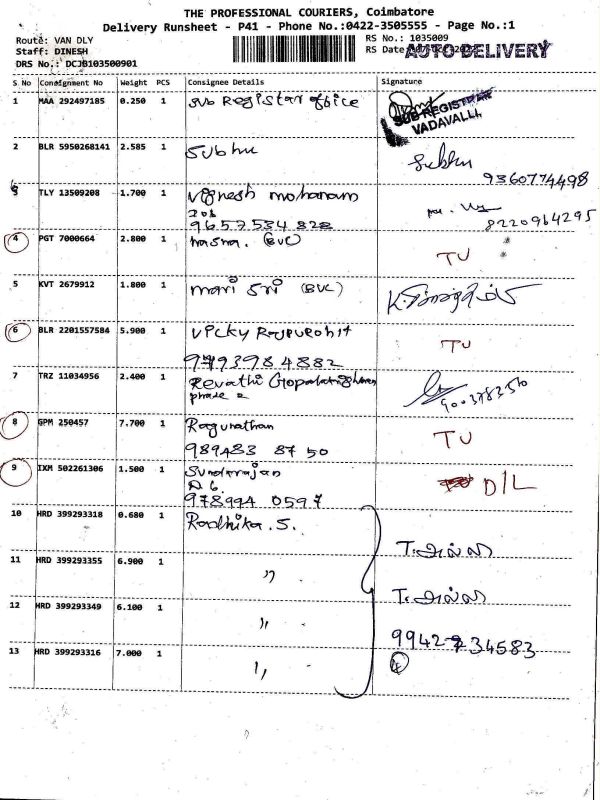 THE PROFESSIONAL COURIERS, Coimbatore
Delivery Runsheet - P41 - Phone No.:0422-3505555 - Page No.:1
Route: VAN DLY RS No.: 1035009
Staff: DINESH RS Date AUTO DELIVERY
DRS No.: DCJB103500901
S No Consignment No Weight PCS Consignee Details Signature
1 MAA 292497185 0.250 1 Sub Registar office
SUB REGISTRAR
VADAVALLI
2 BLR 5950268141 2.585 1 Subhu Subhu
9360774498
3 TLY 13509208 1.700 1 Vignesh mohanam
9657534 828 8220964295
4 PGT 7000664 2.800 1 hasna. (BVC) TU
5 KVT 2679912 1.800 1 mari sri (BVC)
6 BLR 2201557584 5.900 1 Vicky Rajpurohit TU
9793984882
7 TRZ 11034956 2.400 1 Revathi
phase 2
8 GPM 250457 7.700 1 Ragunathan TU
989483 87 50
9 IXM 502261306 1.500 1 Sundarajan D/L
D 6.
978994 0597
10 HRD 399293318 0.680 1 Radhika. S.
11 HRD 399293355 6.900 1 〃
12 HRD 399293349 6.100 1 〃
9942734583
13 HRD 399293316 7.000 1 〃